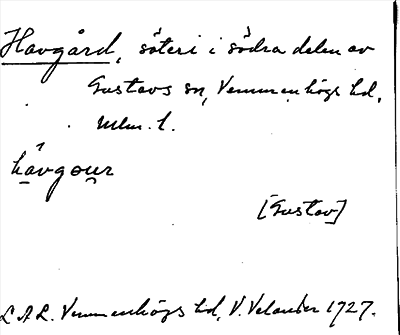 Havgård, säteri i södra delen av
Gustavs sn, Vemmenhögs hd,
Mlm. l.
hávgour
[Gustav]
L.A.L. Vemmenhögs hd, V. Velander 1727.